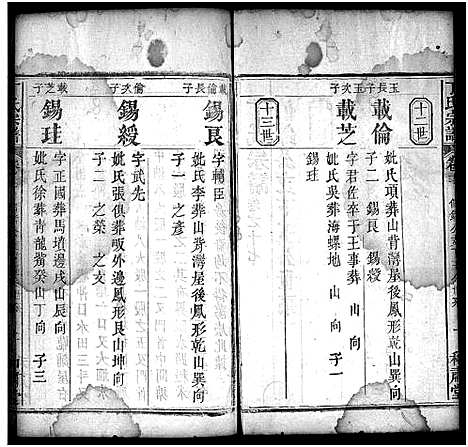 十二世
玉長子
載倫
妣氏項葬山背灣屋後鳳形乾山巽向
子二 錫艮 錫綬
玉次子
載芝
字君佐卒于王事葬
妣氏吳葬海螺地 山 向 子一
錫珪
十三世
載倫長子
錫艮
字輔臣
妣氏李葬山背灣屋後鳳形乾山巽向
子一 之彥
倫次子
錫綬
字武先
妣氏張俱葬畈外邊鳳形艮山坤向
子二 之榮 之文
載芝子
錫珪
字正國葬馬墳邊戌山辰向
妣氏徐葬青龍嘴癸山丁向 子三